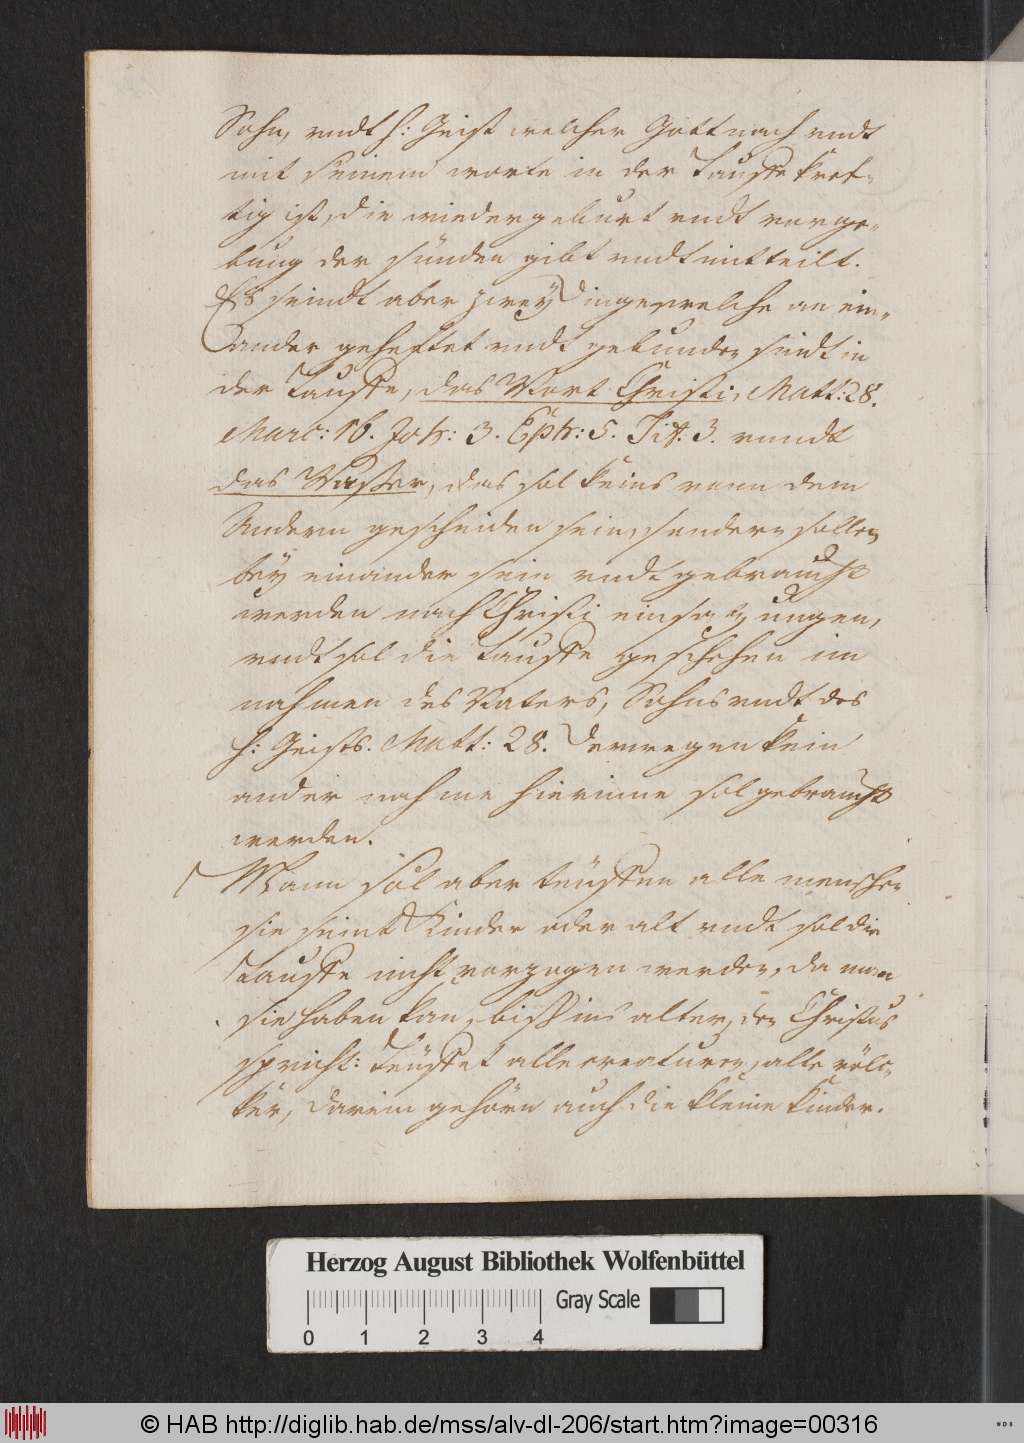 Sohn, undt h: Geist welcher Gott nach undt
mit seinem worte in der Tauffe kref-
tig ist, die wiedergeburt undt verge-
bung der sünden gibt undt mitteilt.
Es seindt aber zwey Dinge welche an ein-
ander gehefftet undt gebunden sindt in
der Tauffe, das Wort Christi, Matt: 28.
Marc: 16. Joh: 3. Eph: 5. Tit. 3. unndt
das Wasser, das sol keins vonn dem
Andern gescheiden sein, sondern sollen
bey einander sein undt gebraucht
werden nach Christi einsatzungen,
undt sol die Tauffe geschehen im
nahmen des Vaters, Sohns undt des
h: Geists. Matt: 28. Derwegen kein
ander nahme hierinne sol gebraucht
werden.
Mann sol aber teüffen alle menschen
sie seint Kinder oder alt undt sol die
Tauffe nicht verzogen werden, da man
sie haben kan, biß ins alter, den Christus
spricht: Teüffet alle creaturen, alle völc-
ker, darein gehörn auch die kleine Kinder.
Herzog August Bibliothek Wolfenbüttel
Gray Scale
0 1 2 3 4
© HAB http://diglib.hab.de/mss/alv-dl-206/start.htm?image=00316